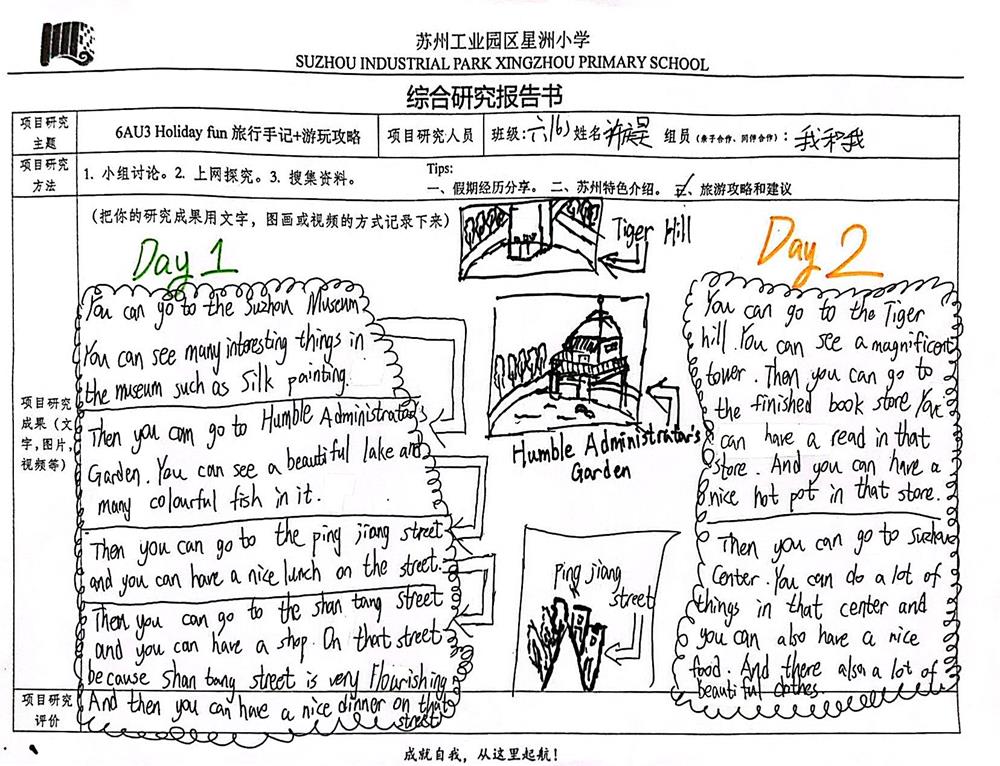 苏州工业园区星洲小学
SUZHOU INDUSTRIAL PARK XINGZHOU PRIMARY SCHOOL
综合研究报告书
项目研究主题
6AU3 Holiday fun 旅行手记+游玩攻略
项目研究人员
班级:六(6) 姓名 组员(亲子合作、同伴合作):我和我
项目研究方法
1. 小组讨论。2. 上网探究。3. 搜集资料。
Tips:
一、假期经历分享。 二、苏州特色介绍。 三、旅游攻略和建议
项目研究成果(文字,图片,视频等)
(把你的研究成果用文字,图画或视频的方式记录下来)
Day 1
You can go to the Suzhou Museum
You can see many interesting things in
the museum such as Silk painting.
Then you can go to Humble Administrator's
Garden. You can see a beautiful lake and
many colourful fish in it.
Then you can go to the ping jiang street
and you can have a nice lunch on the street.
Then you can go to the shan tang street
and you can have a shop. On that street
because shan tang street is very flourishing
And then you can have a nice dinner on that
street
Tiger Hill
Humble Administrator's
Garden
Ping jiang
street
Day 2
You can go to the Tiger
hill. You can see a magnificent
tower. Then you can go to
the finished book store You
can have a read in that
store. And you can have a
nice hot pot in that store.
Then you can go to Suzhou
Center. You can do a lot of
things in that center and
you can also have a nice
food. And there also a lot of
beautiful clothes.
项目研究评价
成就自我,从这里起航!